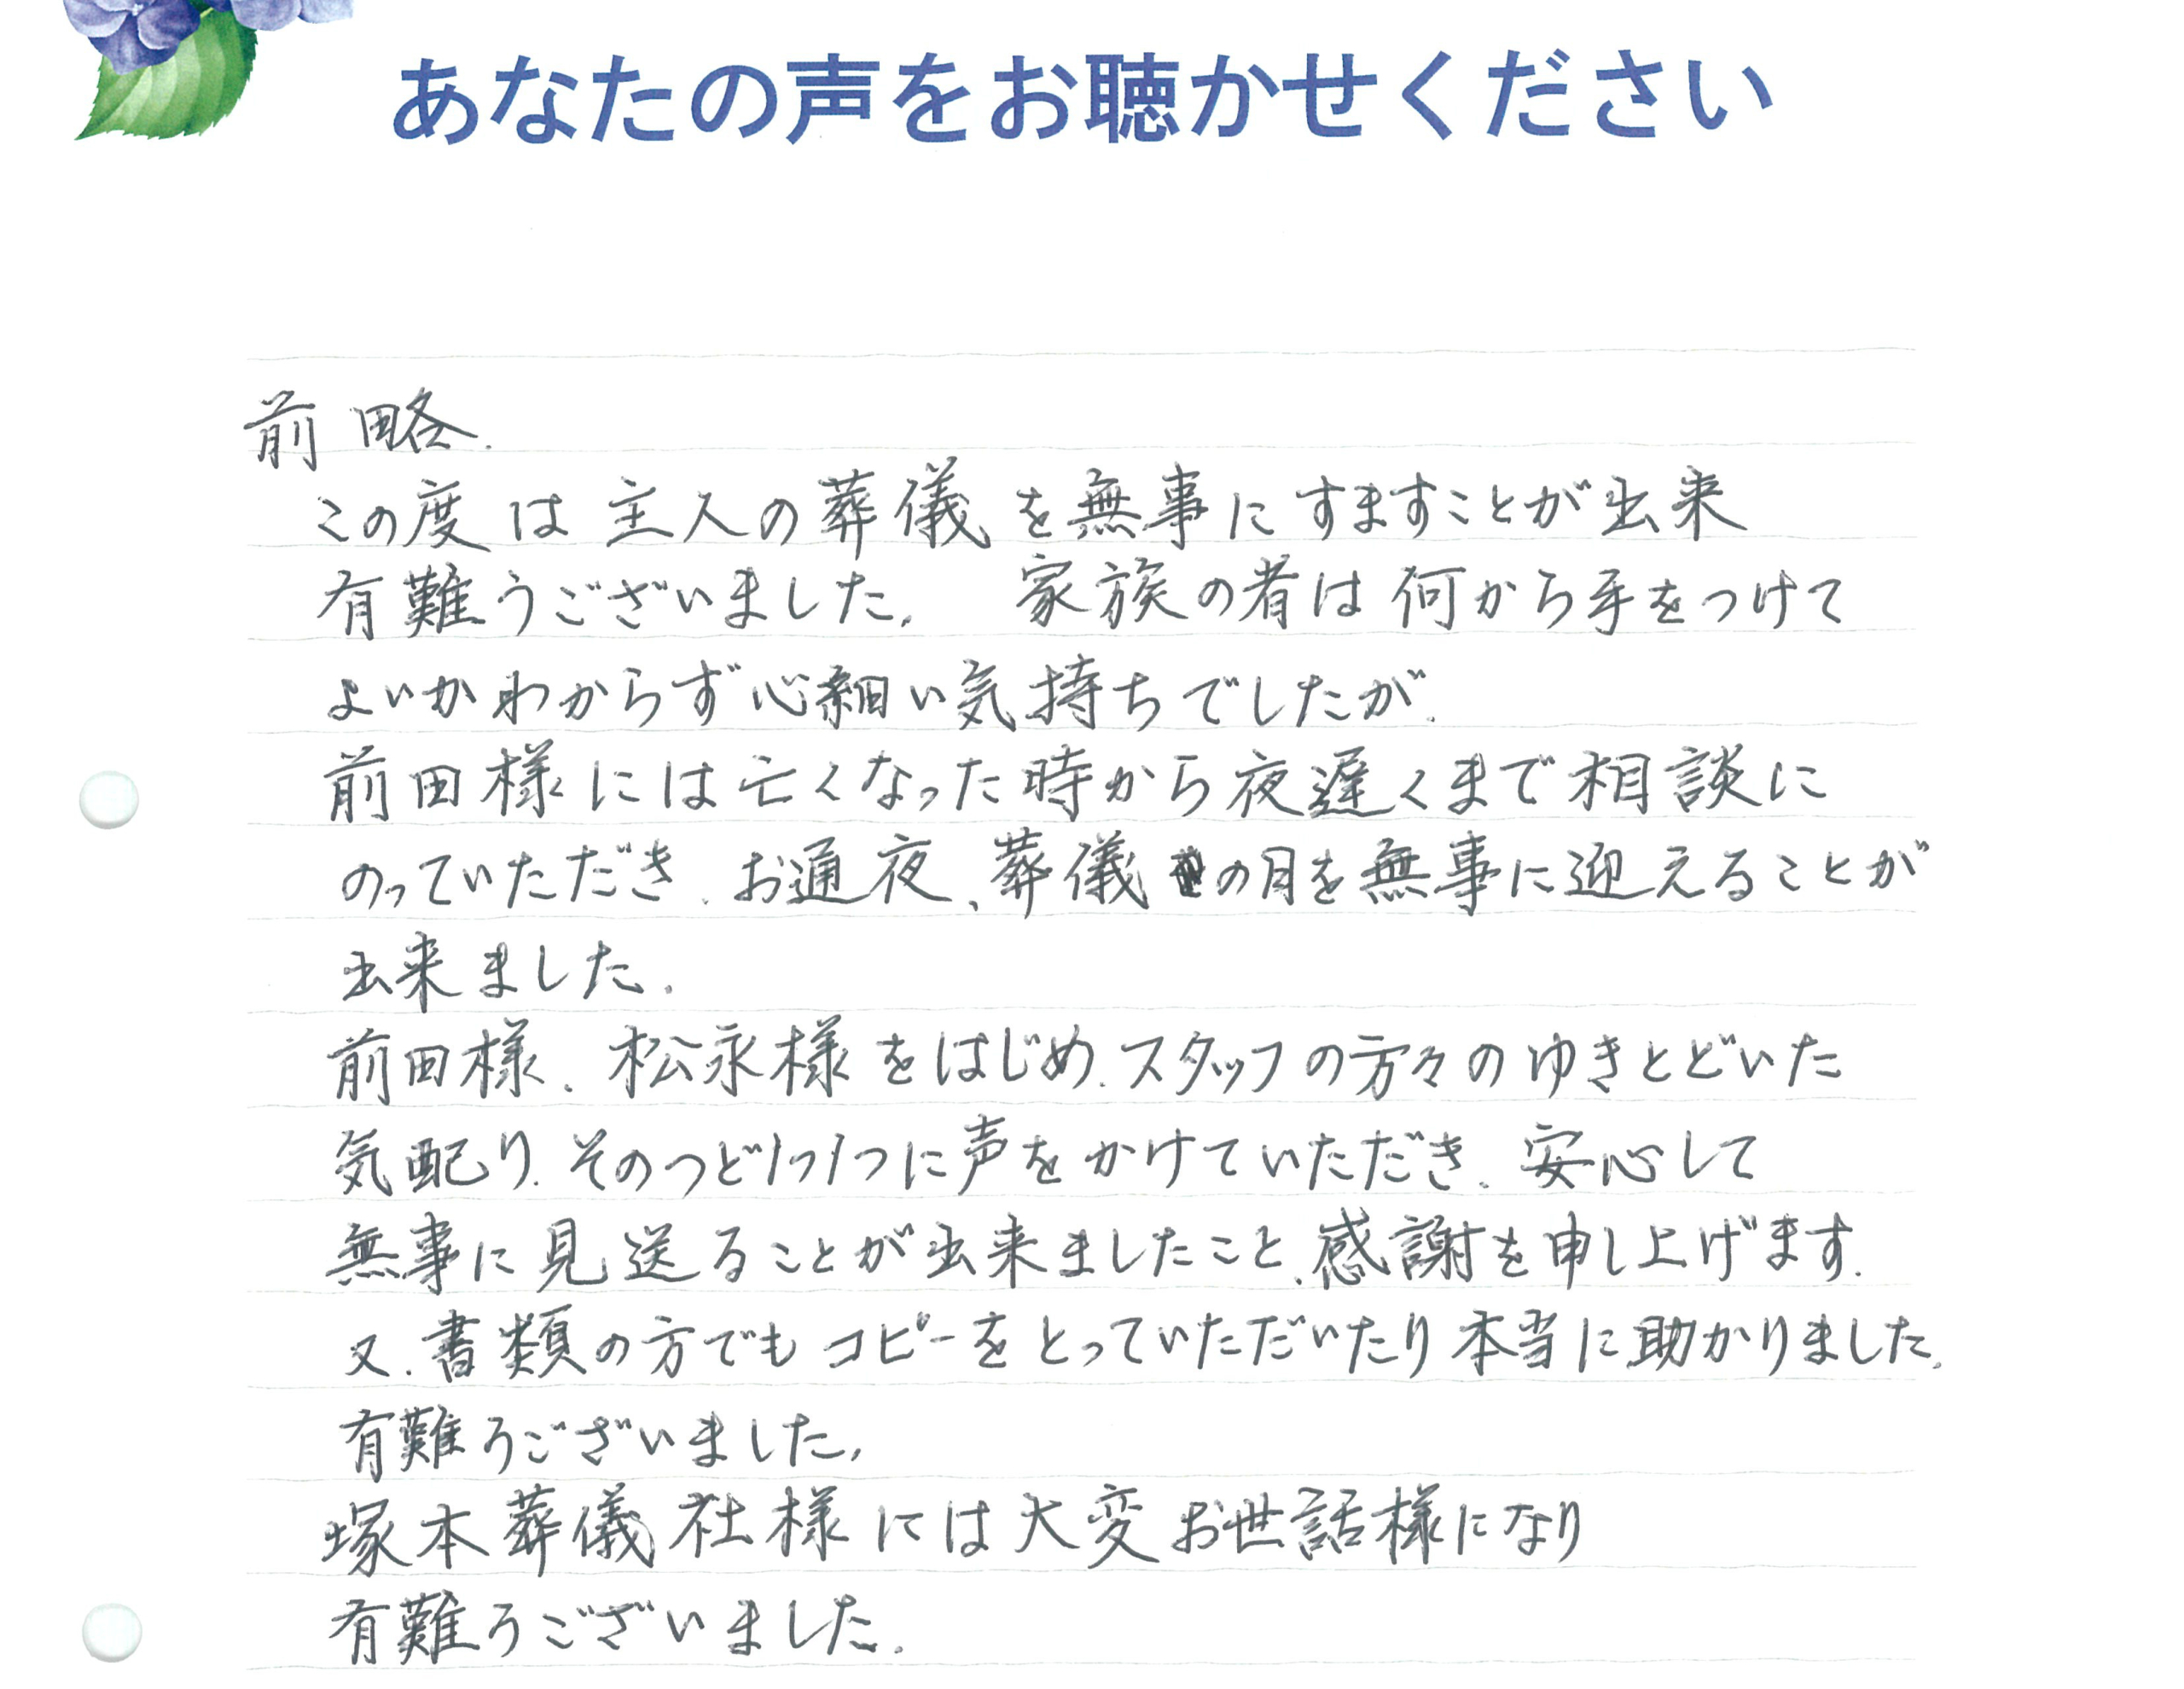 あなたの声をお聴かせください
前略.
この度は主人の葬儀を無事にすますことが出来
有難うございました。 家族の者は何から手をつけて
よいかわからず心細い気持ちでしたが、
前田様には亡くなった時から夜遅くまで相談に
のっていただき、お通夜、葬儀の日を無事に迎えることが
出来ました。
前田様、松永様をはじめ、スタッフの方々のゆきとどいた
気配り、そのつど1つ1つに声をかけていただき、安心して
無事に見送ることが出来ましたこと、感謝を申し上げます。
又、書類の方でもコピーをとっていただいたり本当に助かりました。
有難うございました。
塚本葬儀社様には大変お世話様になり
有難うございました。